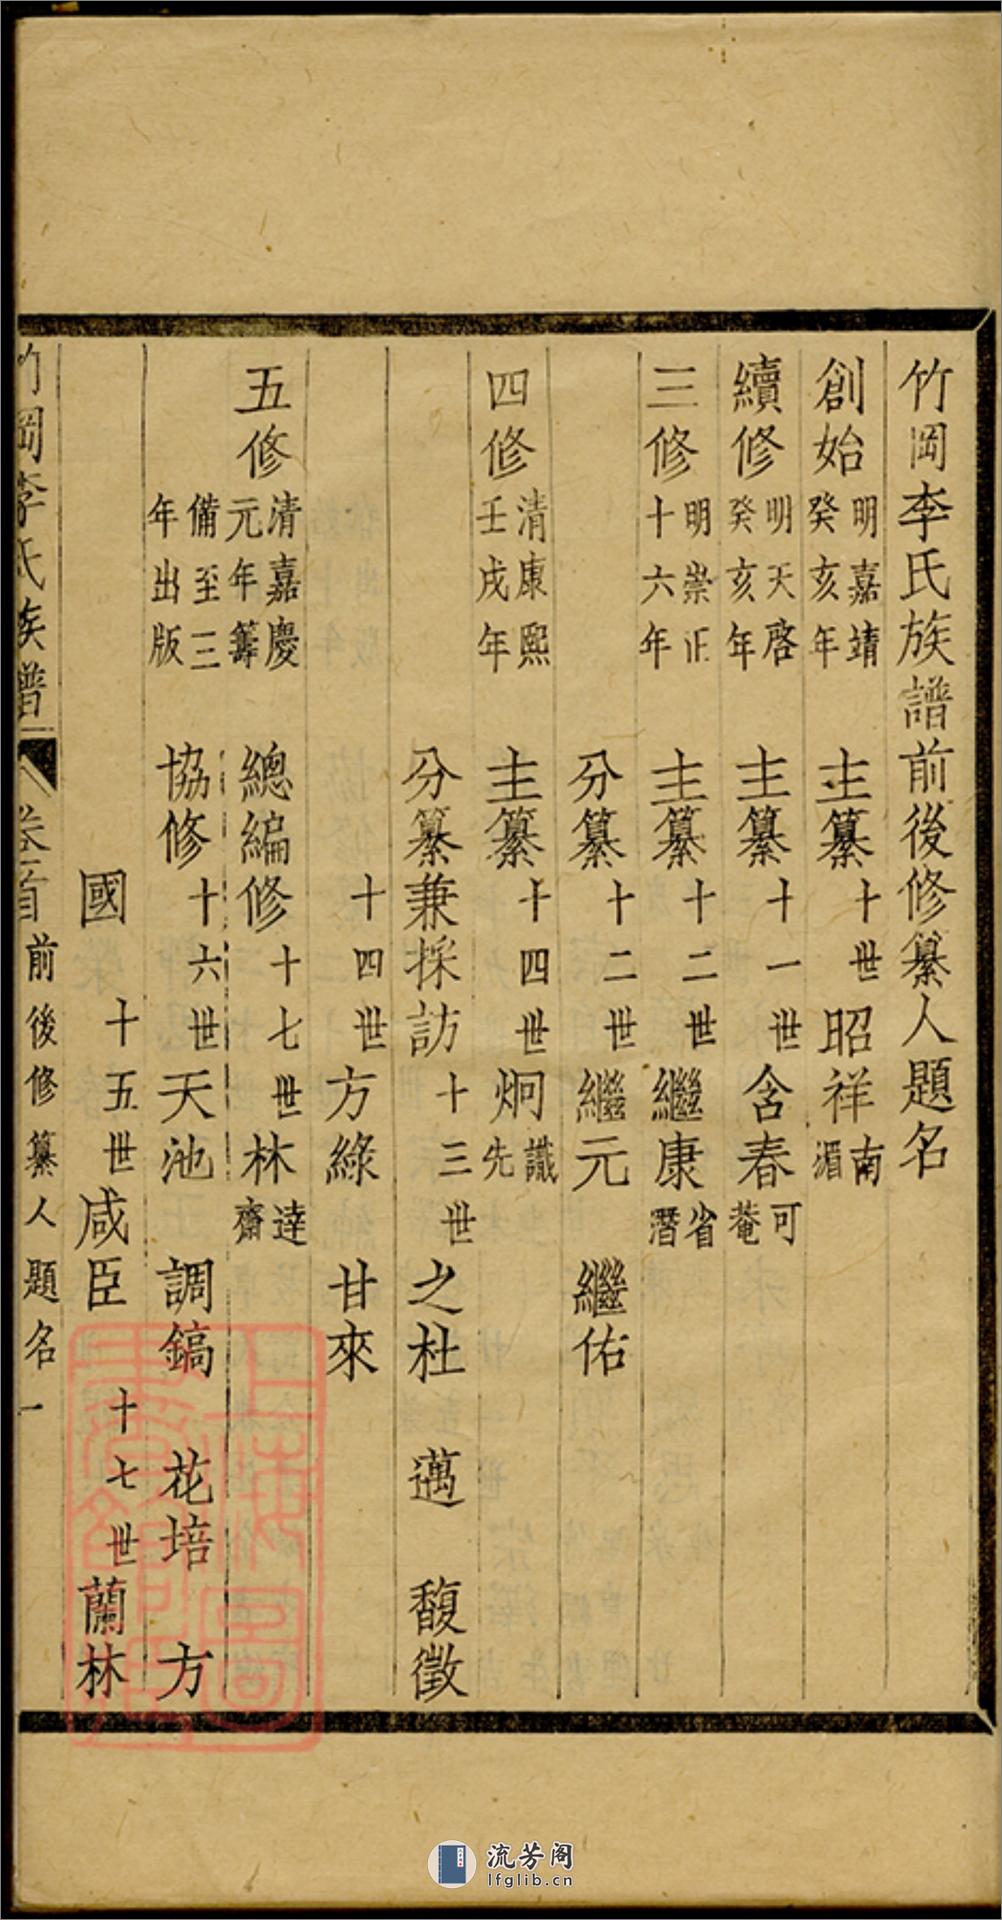 竹岡李氏族譜前後修纂人題名
創始 明嘉靖癸亥年 主纂 十世 昭祥 南湄
續修 明天啓癸亥年 主纂 十一世 含春 可菴
三修 明崇正十六年 主纂 十二世 繼康 省潛
分纂 十二世 繼元 繼佑
四修 清康熙壬戌年 主纂 十四世 炯 識先
分纂兼採訪 十三世 之杜 邁 馥徵
十四世 方綠 甘來
五修 清嘉慶元年籌備至三年出版 總編修 十七世 林 達齋
協修 十六世 天池 調鎬 花培 方
國 十五世 咸臣 十七世 蘭林
竹岡李氏族譜 卷首 前後修纂人題名 一
上海圖書館藏
流芳阁
lfglib.cn